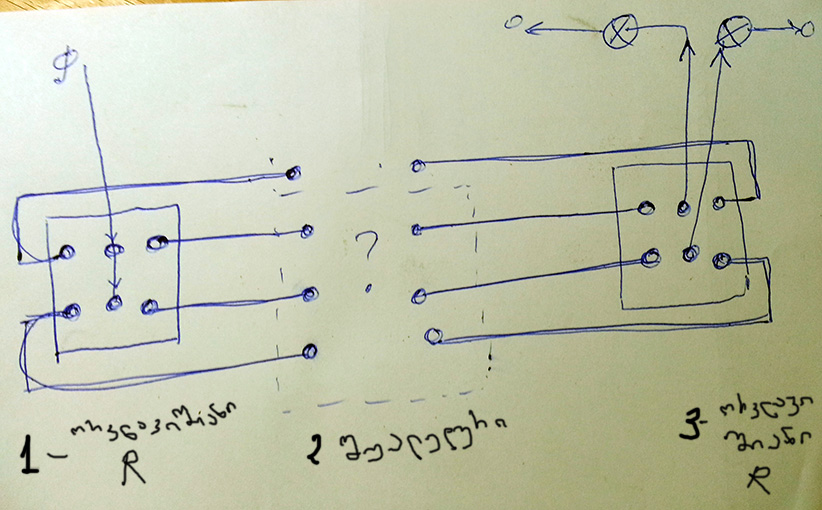 0
0
ф
?
1 – ორკლავიშიანი
R
2 შუალედური
3- ორკლავი
შიანი
R